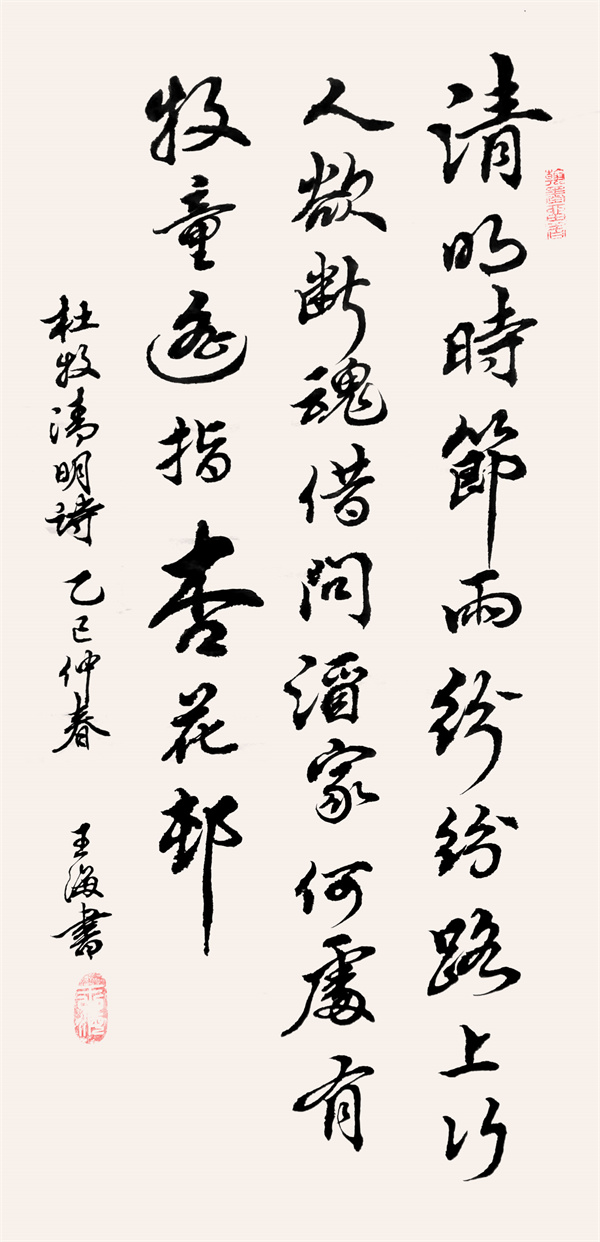 清明時節雨紛紛路上行
人欲斷魂借問酒家何處有
牧童遙指杏花邨
杜牧清明詩 乙巳仲春 王海書